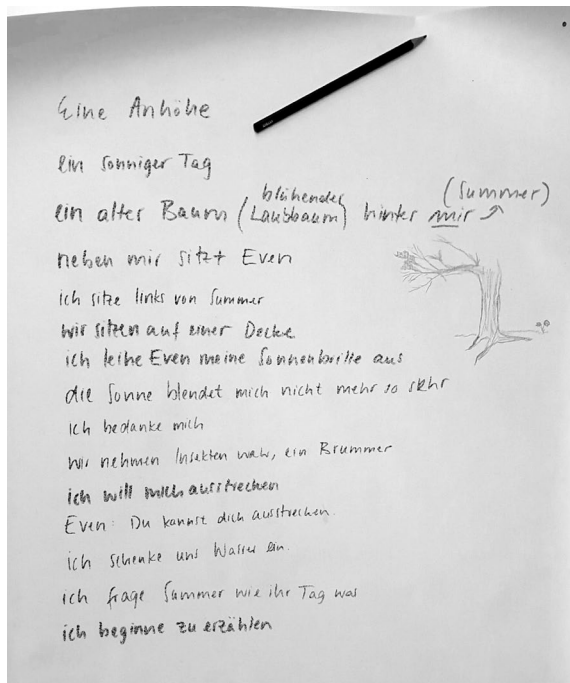 Eine Anhöhe
ein sonniger Tag
ein alter Baum (blühender Laubbaum) hinter mir (Summer)
neben mir sitzt Even
ich sitze links von Summer
wir sitzen auf einer Decke
ich leihe Even meine Sonnenbrille aus
die Sonne blendet mich nicht mehr so sehr
ich bedanke mich
wir nehmen Insekten wahr, ein Brummer
ich will mich ausstrecken
Even: Du kannst dich ausstrecken.
ich schenke uns Wasser ein.
ich frage Summer wie ihr Tag was
ich beginne zu erzählen